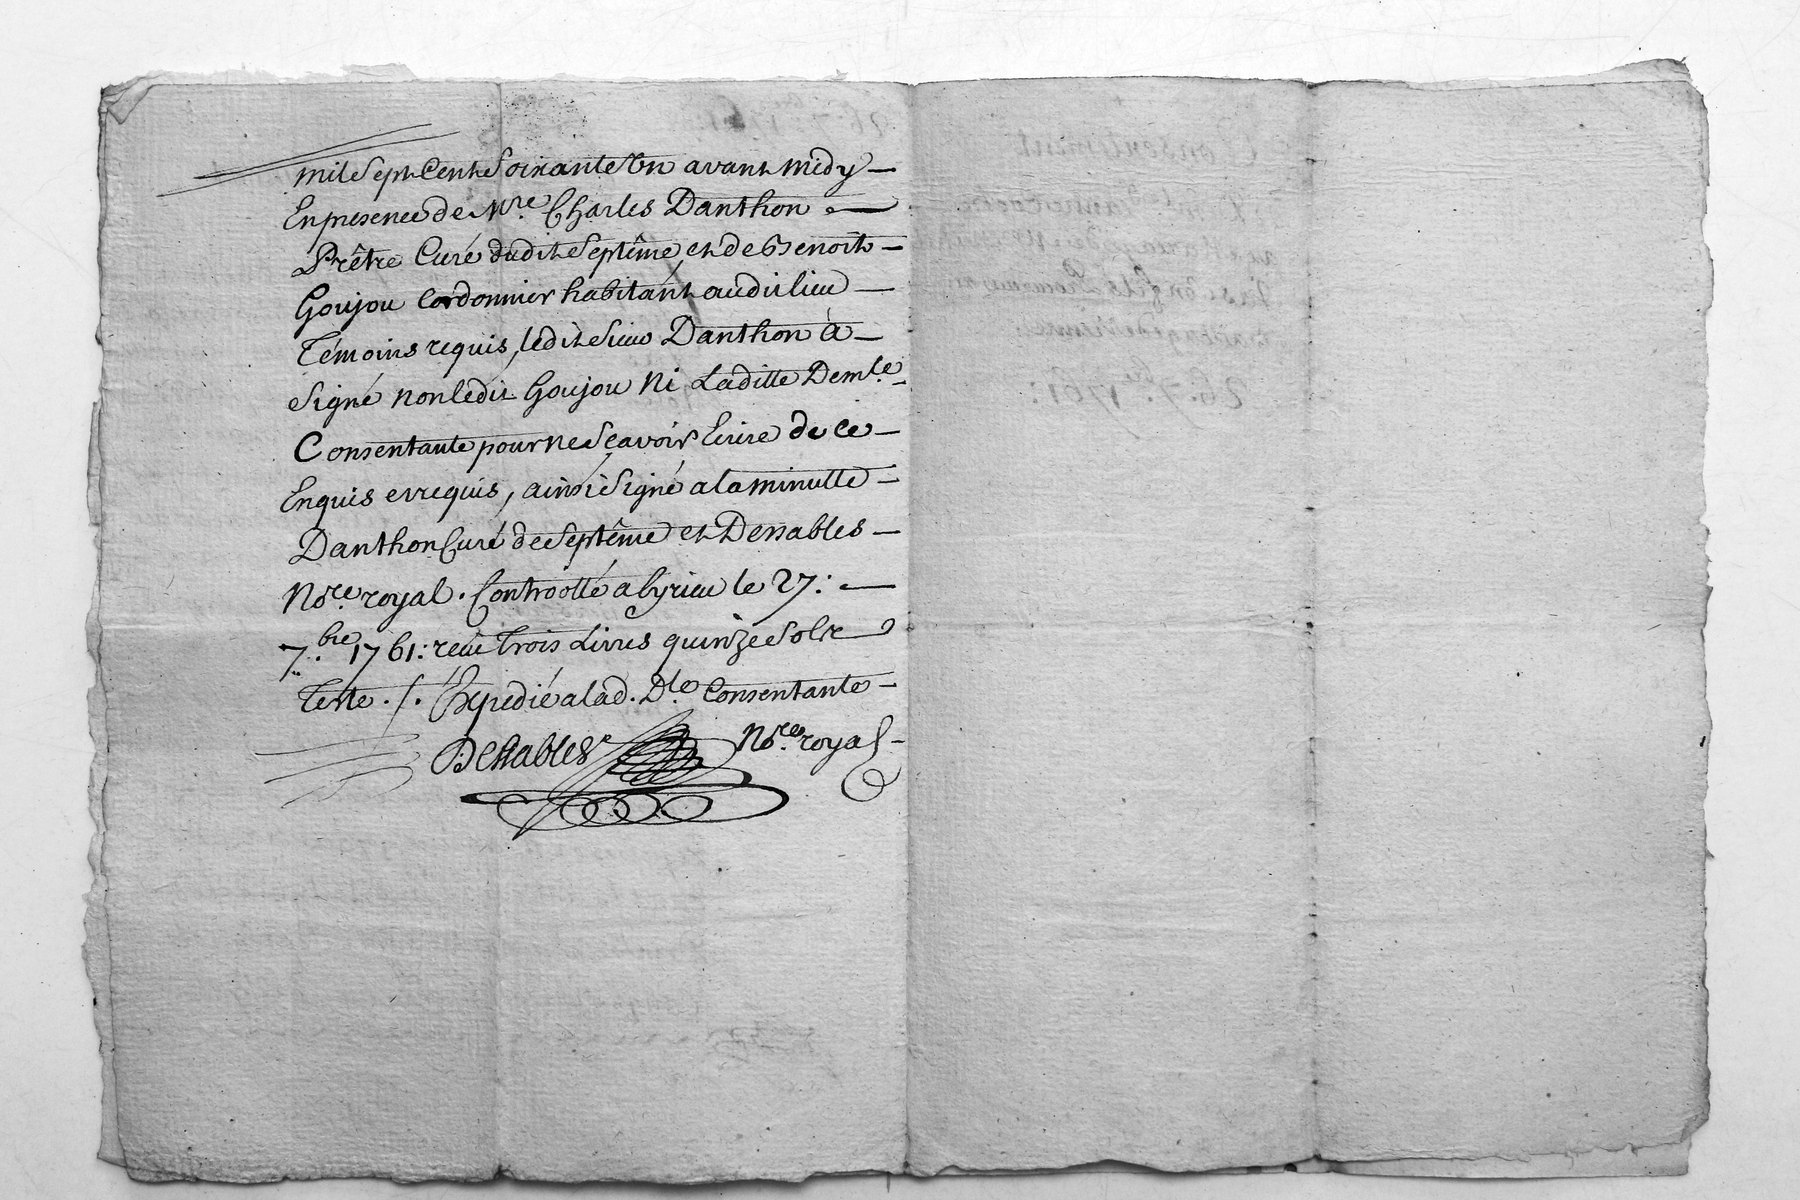 mil Sept Cent Soixante Un avant midy —
En presence de Mre. Charles Danthon —
Prêtre Curé dudit Septême, et de Benoit —
Goujou Cordonnier habitant audit lieu —
Témoins requis, ledit Sieur Danthon à —
Signé non ledit Goujou Ni Laditte Demle. —
Consentante pour ne Sçavoir Ecrire de ce —
Enquis et requis, ainsi Signé a la minutte —
Danthon Curé de Septême et Desables —
Nore. royal. Controollé a Cyrieu le 27: —
7.bre 1761: reçu Trois Livres quinze Sols
Expedié a lad. Dle. Consentante —
Nore. royal —
26. 7.bre 1761:
Consentement
26. 7.bre 1761: